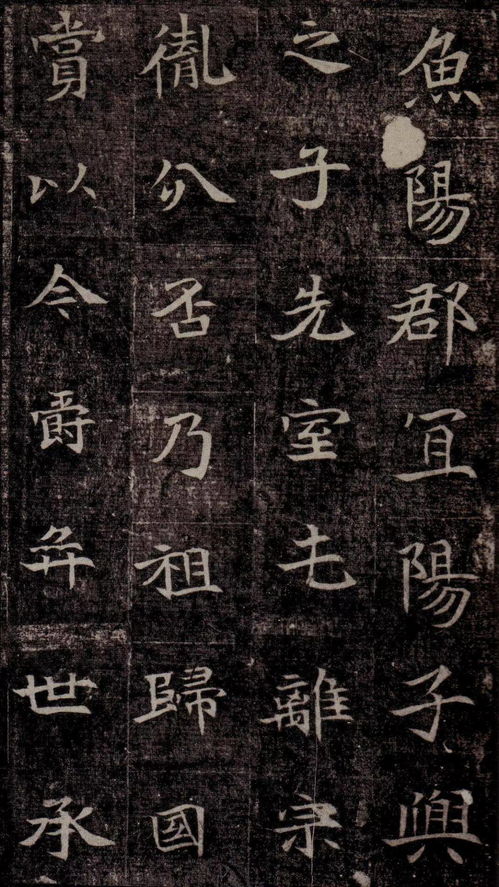 魚陽郡冝陽子興
之子先室屯離宗
胤分否乃祖歸國
賞以今爵并世承